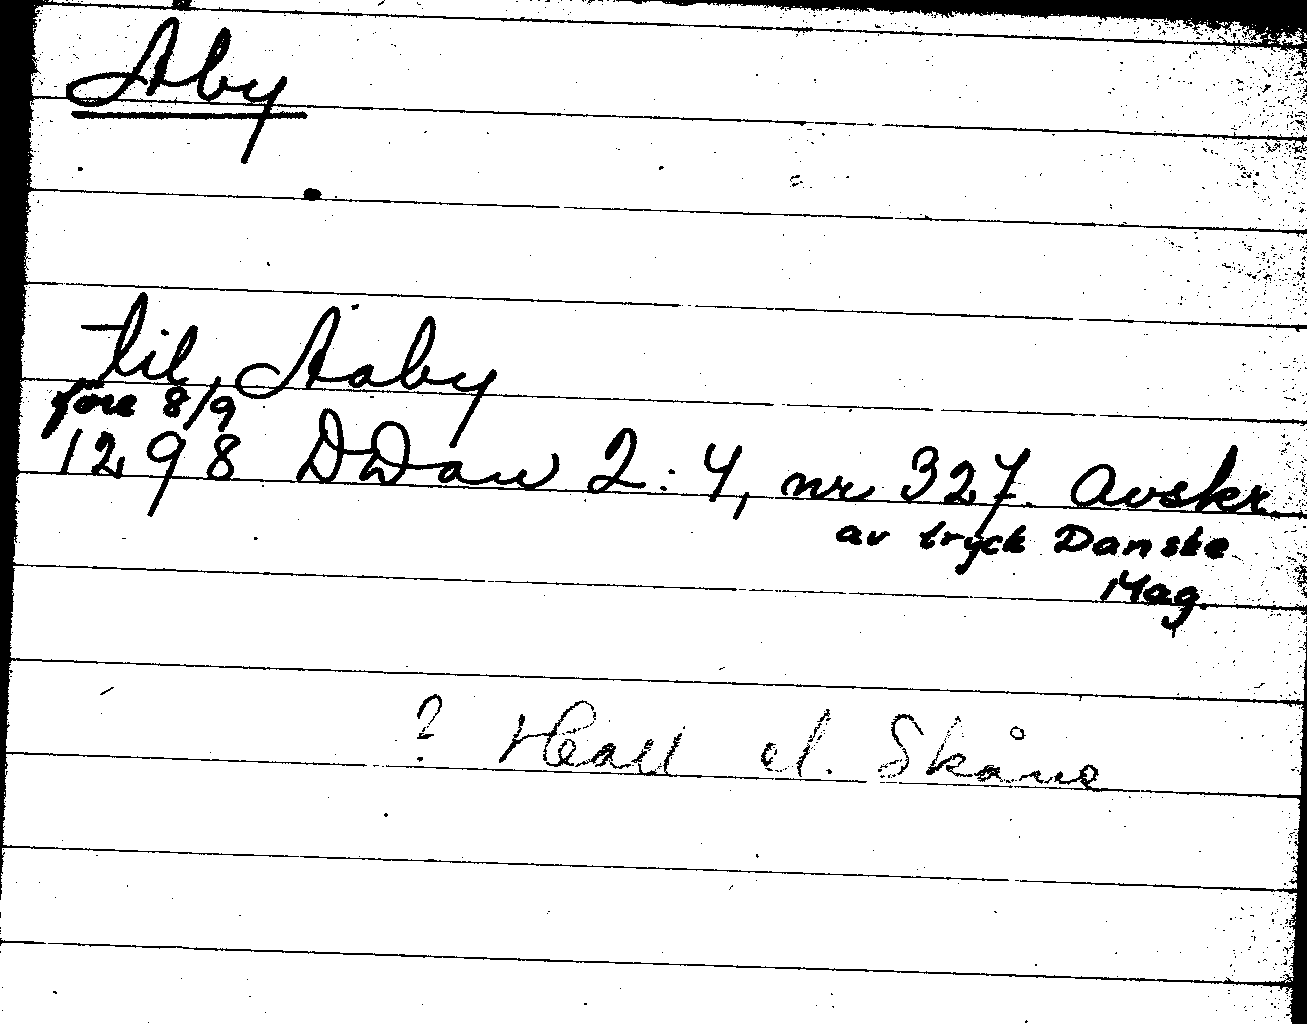 Åby
til Aaby
före 8/9
1298 DDan 2:4, nr 327. Avskr.
av tryck Danske
Mag.
? Hall el. Skåne